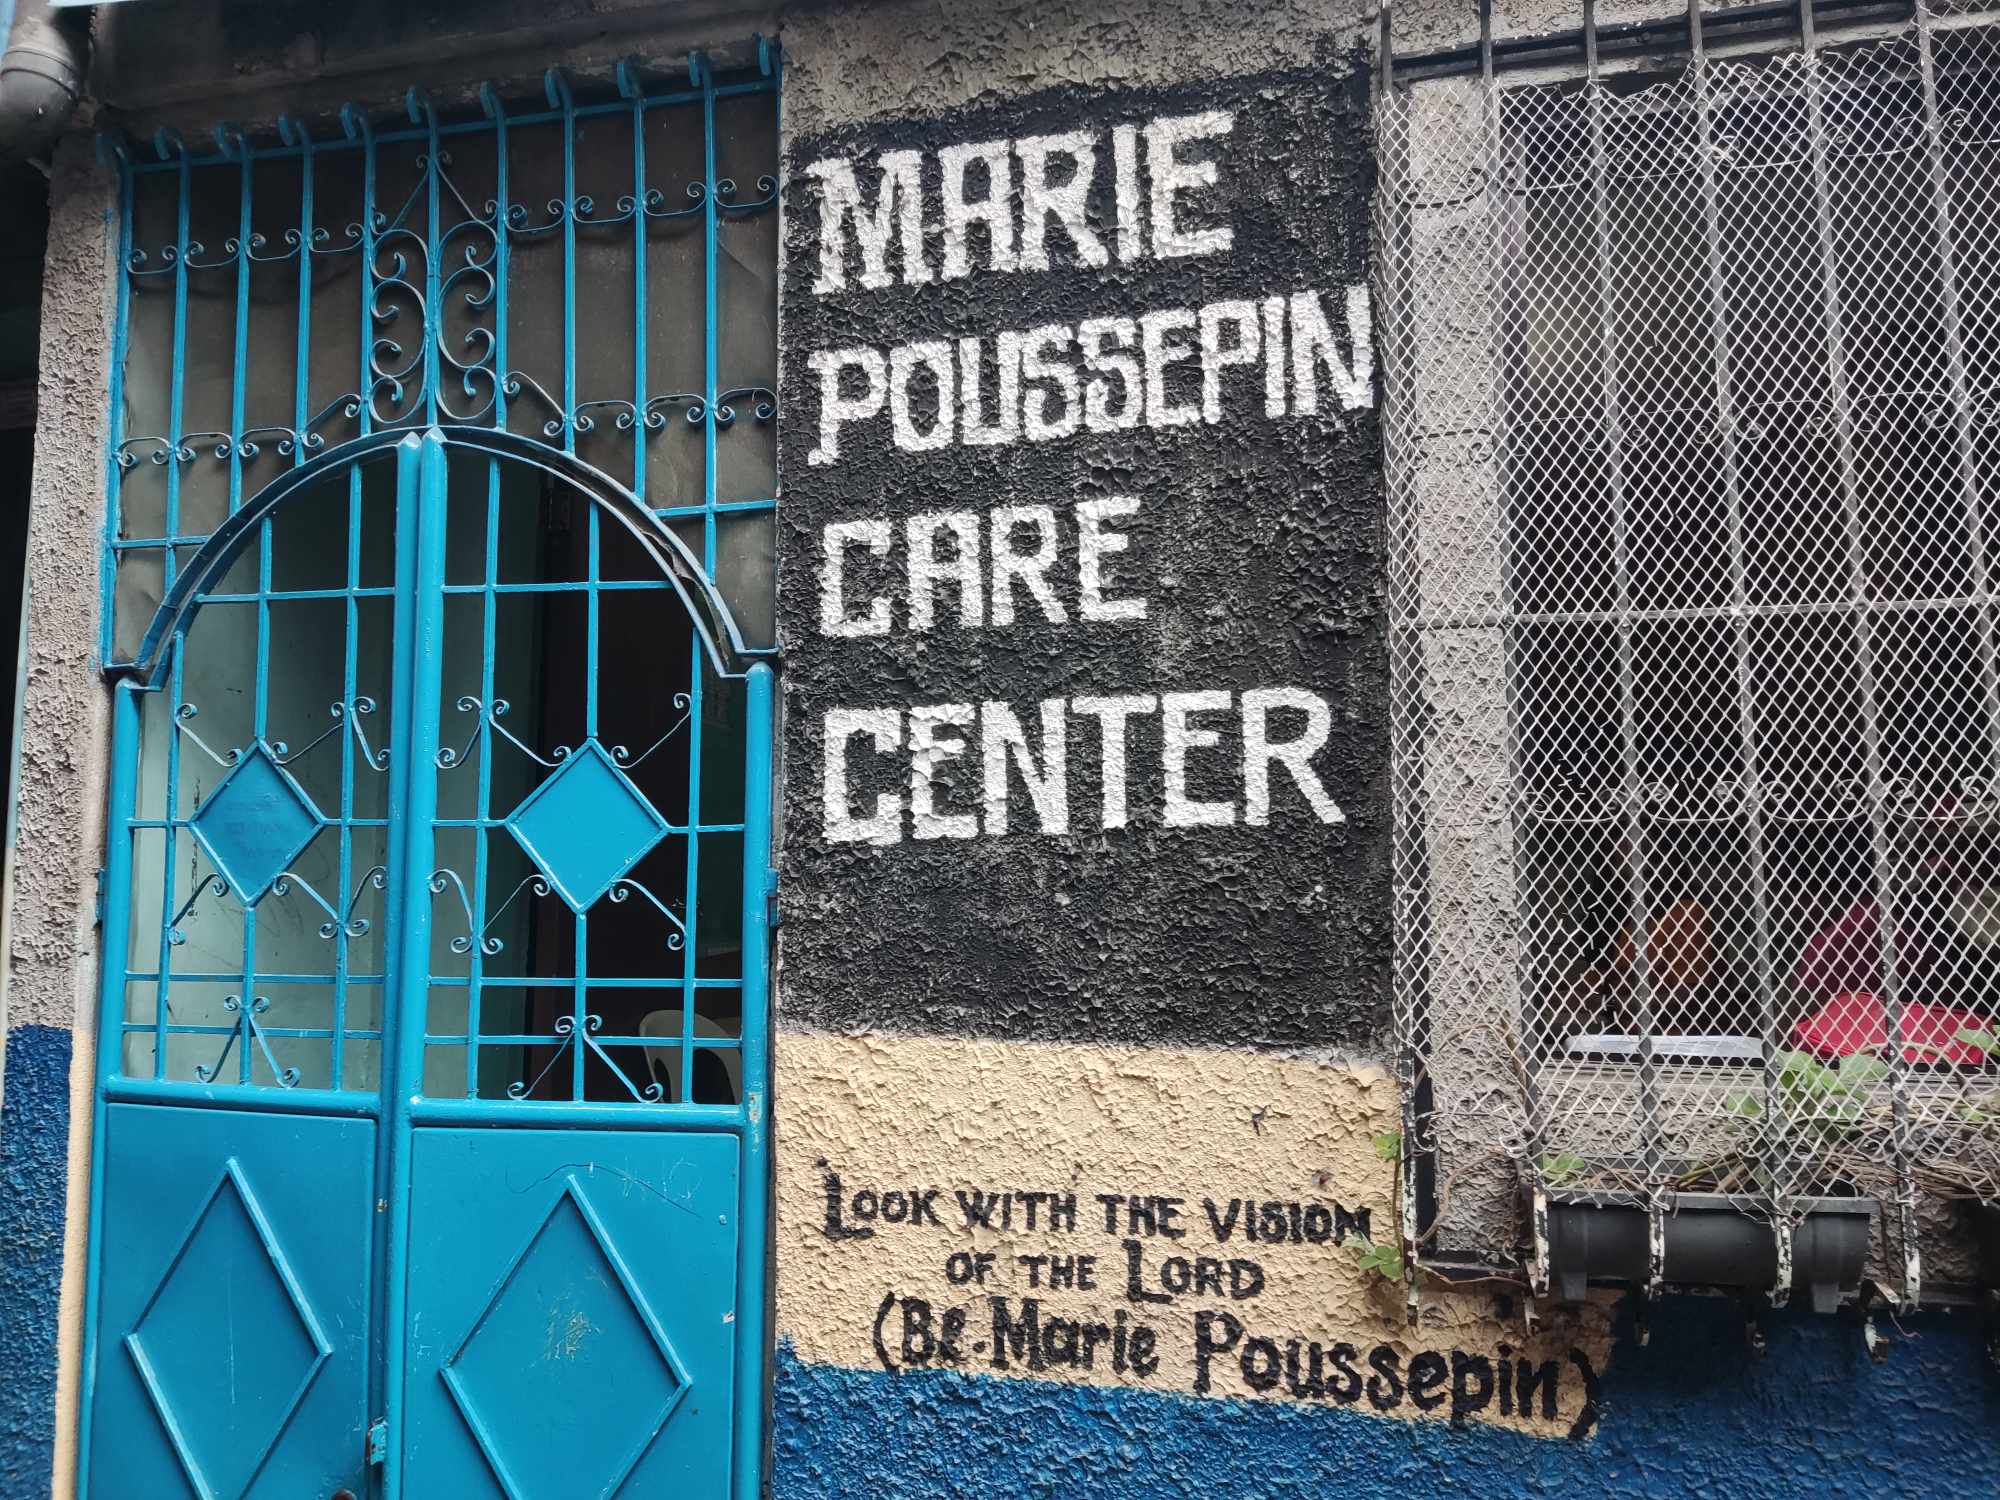 MARIE
POUSSEPIN
CARE
CENTER
LOOK WITH THE VISION
OF THE LORD
(Be. Marie Poussepin)